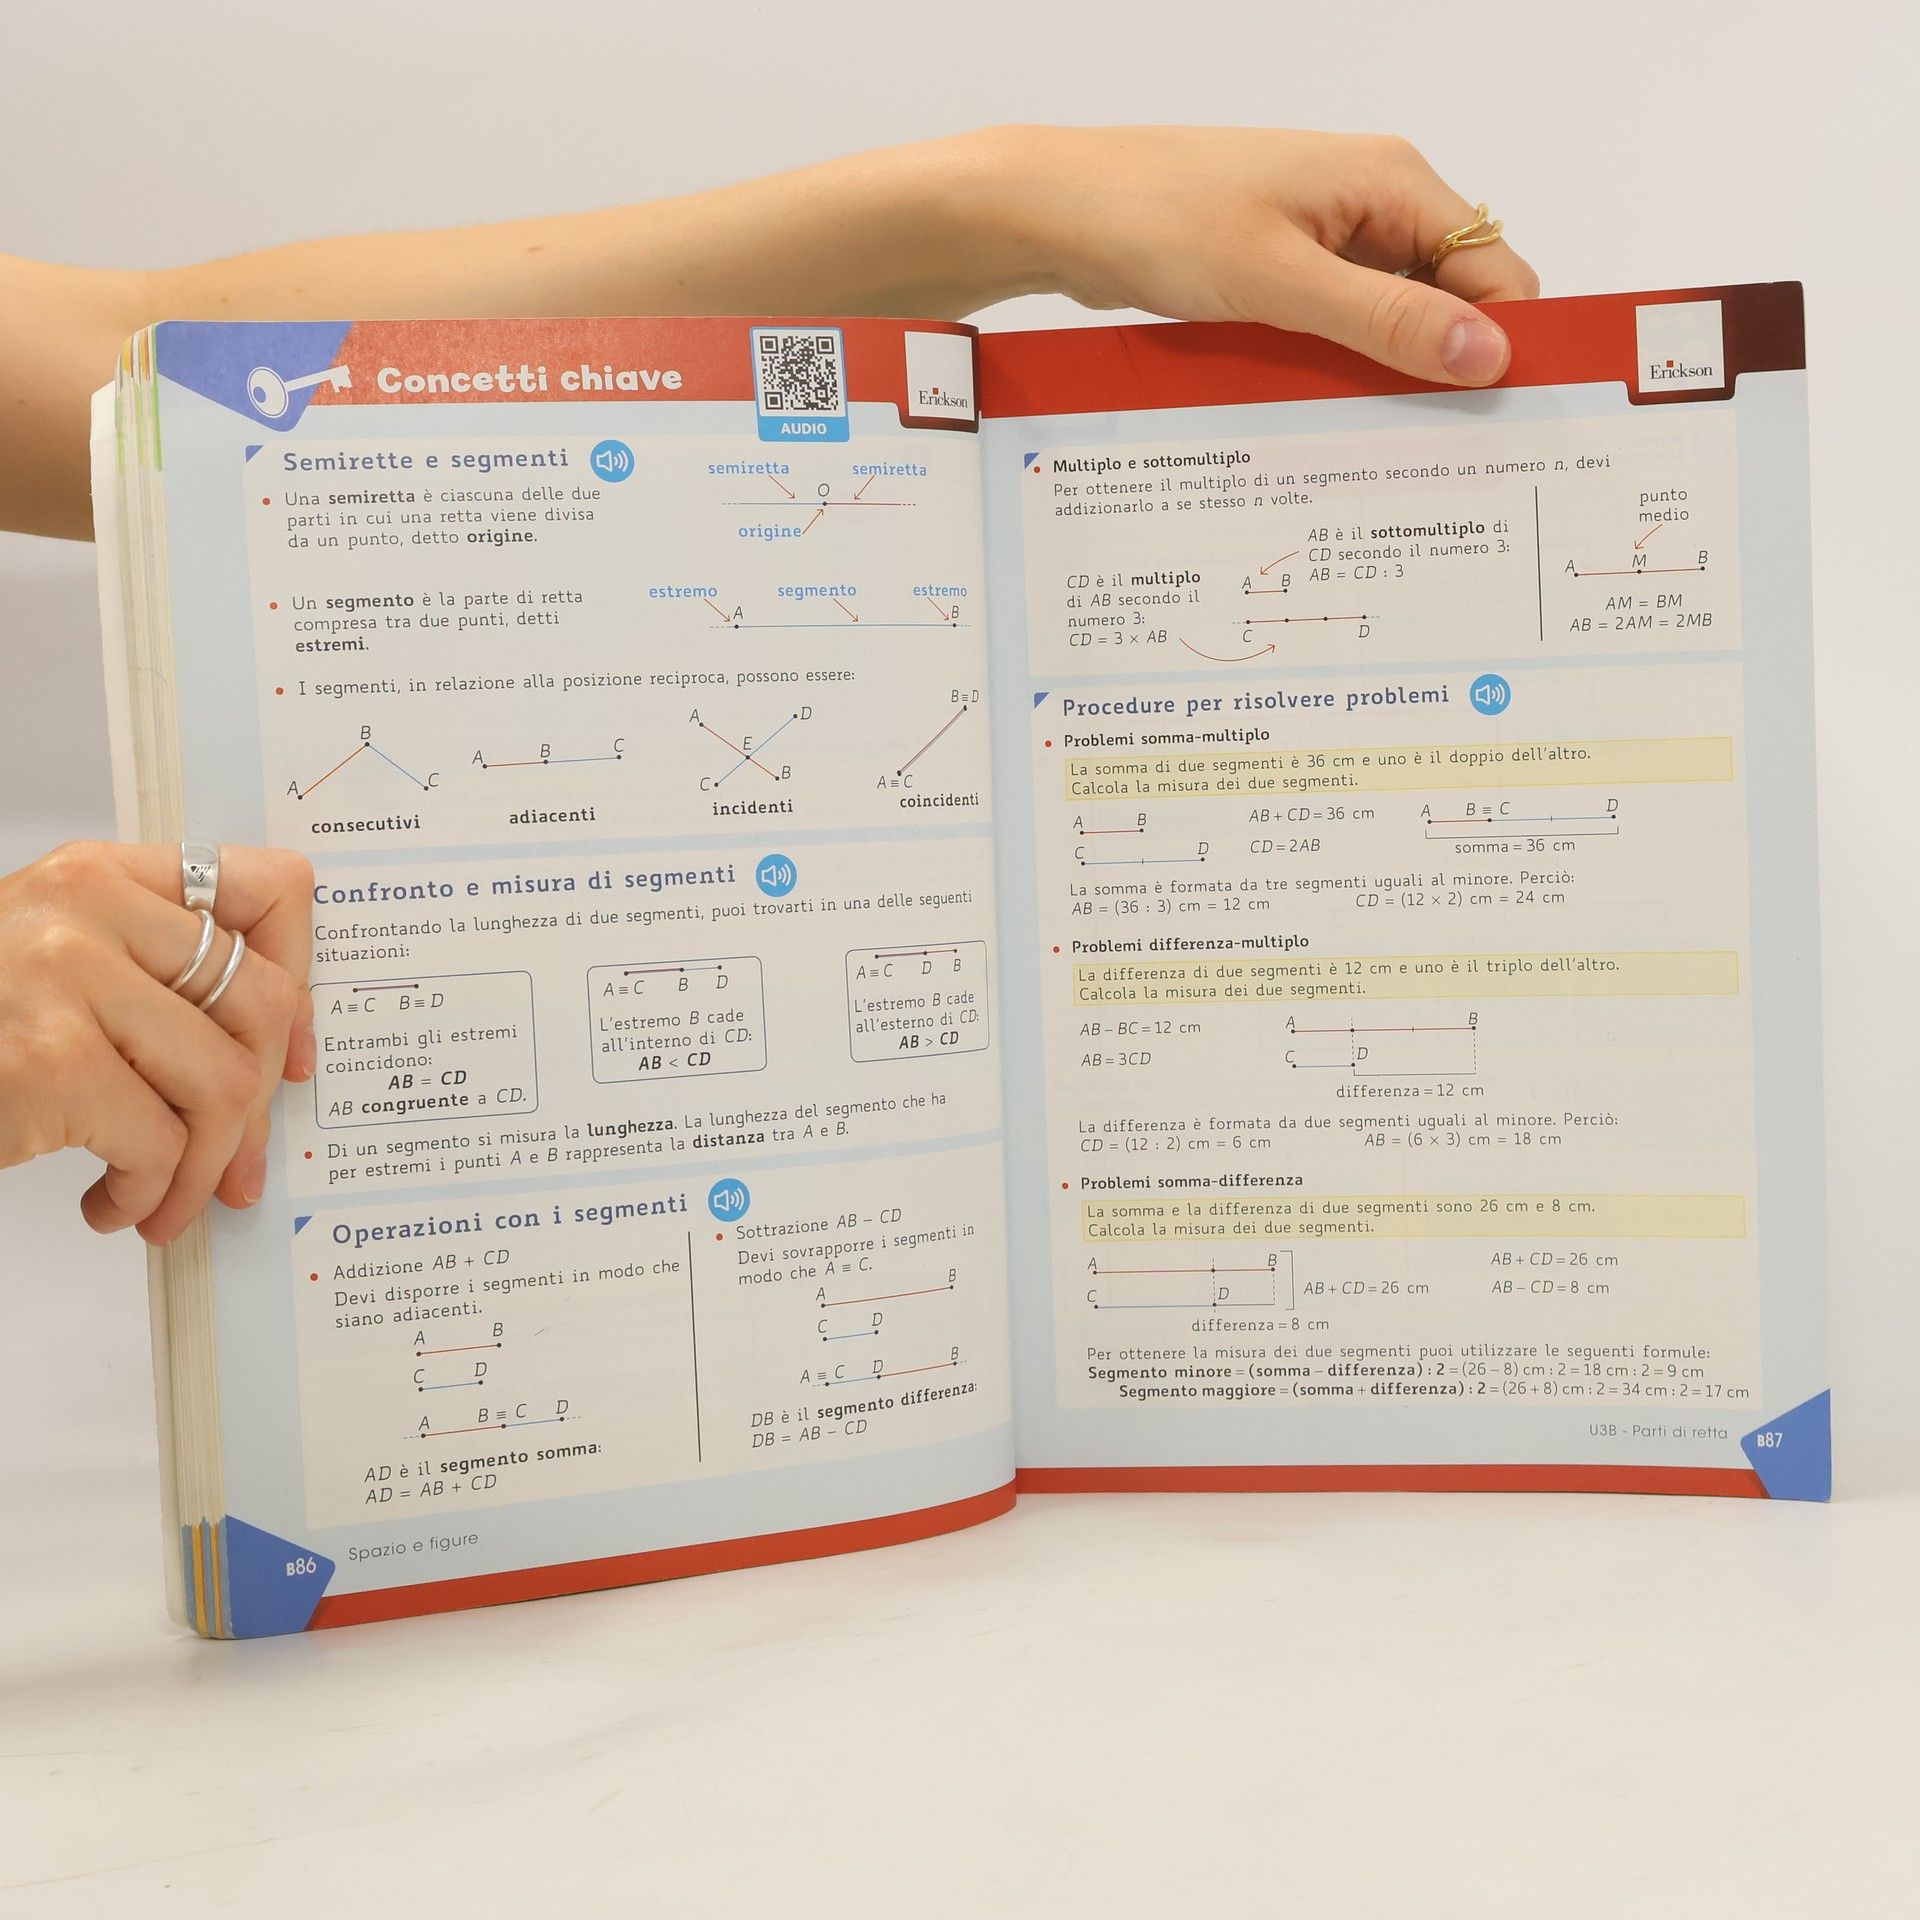 Concetti chiave
AUDIO
Erickson
Semirette e segmenti
Una semiretta è ciascuna delle due
parti in cui una retta viene divisa
da un punto, detto origine.
semiretta semiretta
O
origine
Un segmento è la parte di retta
compresa tra due punti, detti
estremi.
estremo segmento estremo
A B
I segmenti, in relazione alla posizione reciproca, possono essere:
A B C
consecutivi
A B C
adiacenti
A D
E
C B
incidenti
B ≡ D
A ≡ C
coincidenti
Confronto e misura di segmenti
Confrontando la lunghezza di due segmenti, puoi trovarti in una delle seguenti
situazioni:
A ≡ C B ≡ D
Entrambi gli estremi
coincidono:
AB = CD
AB congruente a CD.
A ≡ C B D
L'estremo B cade
all'interno di CD:
AB < CD
A ≡ C D B
L'estremo B cade
all'esterno di CD:
AB > CD
Di un segmento si misura la lunghezza. La lunghezza del segmento che ha
per estremi i punti A e B rappresenta la distanza tra A e B.
Operazioni con i segmenti
Addizione AB + CD
Devi disporre i segmenti in modo che
siano adiacenti.
A B
C D
A B ≡ C D
AD è il segmento somma:
AD = AB + CD
Sottrazione AB – CD
Devi sovrapporre i segmenti in
modo che A ≡ C.
A B
C D
A ≡ C D B
DB è il segmento differenza:
DB = AB – CD
B86 Spazio e figure
Erickson
Multiplo e sottomultiplo
Per ottenere il multiplo di un segmento secondo un numero n, devi
addizionarlo a se stesso n volte.
CD è il multiplo
di AB secondo il
numero 3:
CD = 3 × AB
AB è il sottomultiplo di
CD secondo il numero 3:
AB = CD : 3
A B
C D
punto
medio
A M B
AM = BM
AB = 2AM = 2MB
Procedure per risolvere problemi
Problemi somma-multiplo
La somma di due segmenti è 36 cm e uno è il doppio dell'altro.
Calcola la misura dei due segmenti.
A B
C D
AB + CD = 36 cm
CD = 2AB
A B ≡ C D
somma = 36 cm
La somma è formata da tre segmenti uguali al minore. Perciò:
AB = (36 : 3) cm = 12 cm CD = (12 × 2) cm = 24 cm
Problemi differenza-multiplo
La differenza di due segmenti è 12 cm e uno è il triplo dell'altro.
Calcola la misura dei due segmenti.
AB – BC = 12 cm
AB = 3CD
A B
C D
differenza = 12 cm
La differenza è formata da due segmenti uguali al minore. Perciò:
CD = (12 : 2) cm = 6 cm AB = (6 × 3) cm = 18 cm
Problemi somma-differenza
La somma e la differenza di due segmenti sono 26 cm e 8 cm.
Calcola la misura dei due segmenti.
A B
C D
AB + CD = 26 cm
differenza = 8 cm
AB + CD = 26 cm
AB – CD = 8 cm
Per ottenere la misura dei due segmenti puoi utilizzare le seguenti formule:
Segmento minore = (somma – differenza) : 2 = (26 – 8) cm : 2 = 18 cm : 2 = 9 cm
Segmento maggiore = (somma + differenza) : 2 = (26 + 8) cm : 2 = 34 cm : 2 = 17 cm
U3B - Parti di retta B87